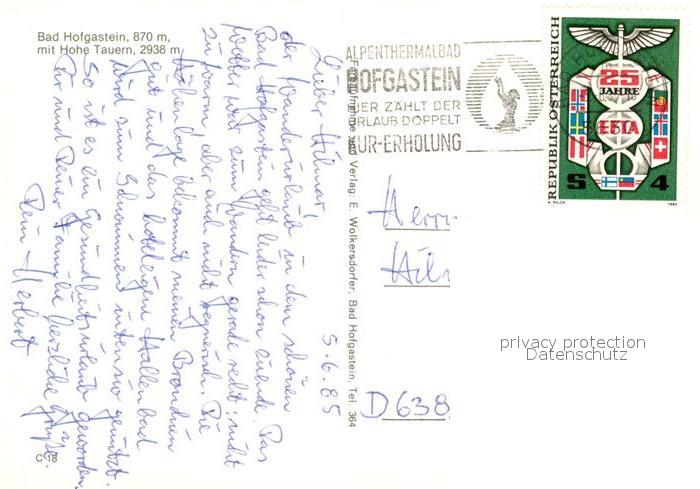 Bad Hofgastein, 870 m,
mit Hohe Tauern, 2938 m
5.6.85
Lieber Hilmar!
der Wanderurlaub in dem schönen
Bad Hofgastein geht leider schon zuende. Das
Wetter war zum Wandern gerade recht: nicht
zu warm aber auch nicht regnerisch. Die
Höhenlage bekommt meinen Bronchien
gut und das hoteleigene Hallenbad
wird zum Schwimmen intensiv genutzt.
So ist es ein Gesundheitsurlaub geworden.
Dir und Deiner Familie herzliche Grüße.
Dein Herbert
C 18
Farbaufnahme und Verlag: E. Wolkersdorfer, Bad Hofgastein, Tel. 364
ALPENTHERMALBAD
HOFGASTEIN
HIER ZÄHLT DER
URLAUB DOPPELT
KUR-ERHOLUNG
REPUBLIK ÖSTERREICH
25
JAHRE
EFTA
S 4
A. PILCH 1985
Herrn
Hil
D 638
privacy protection
Datenschutz